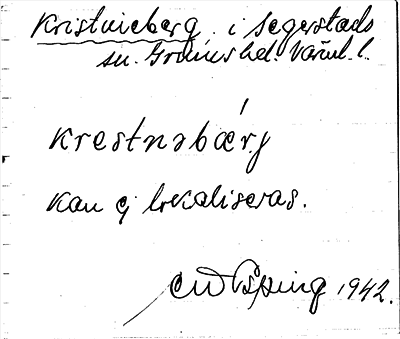 Kristineberg i Segerstads
sn. Grums hd. Värml. l.
krestnəbær'j
kan ej lokaliseras.
1942.